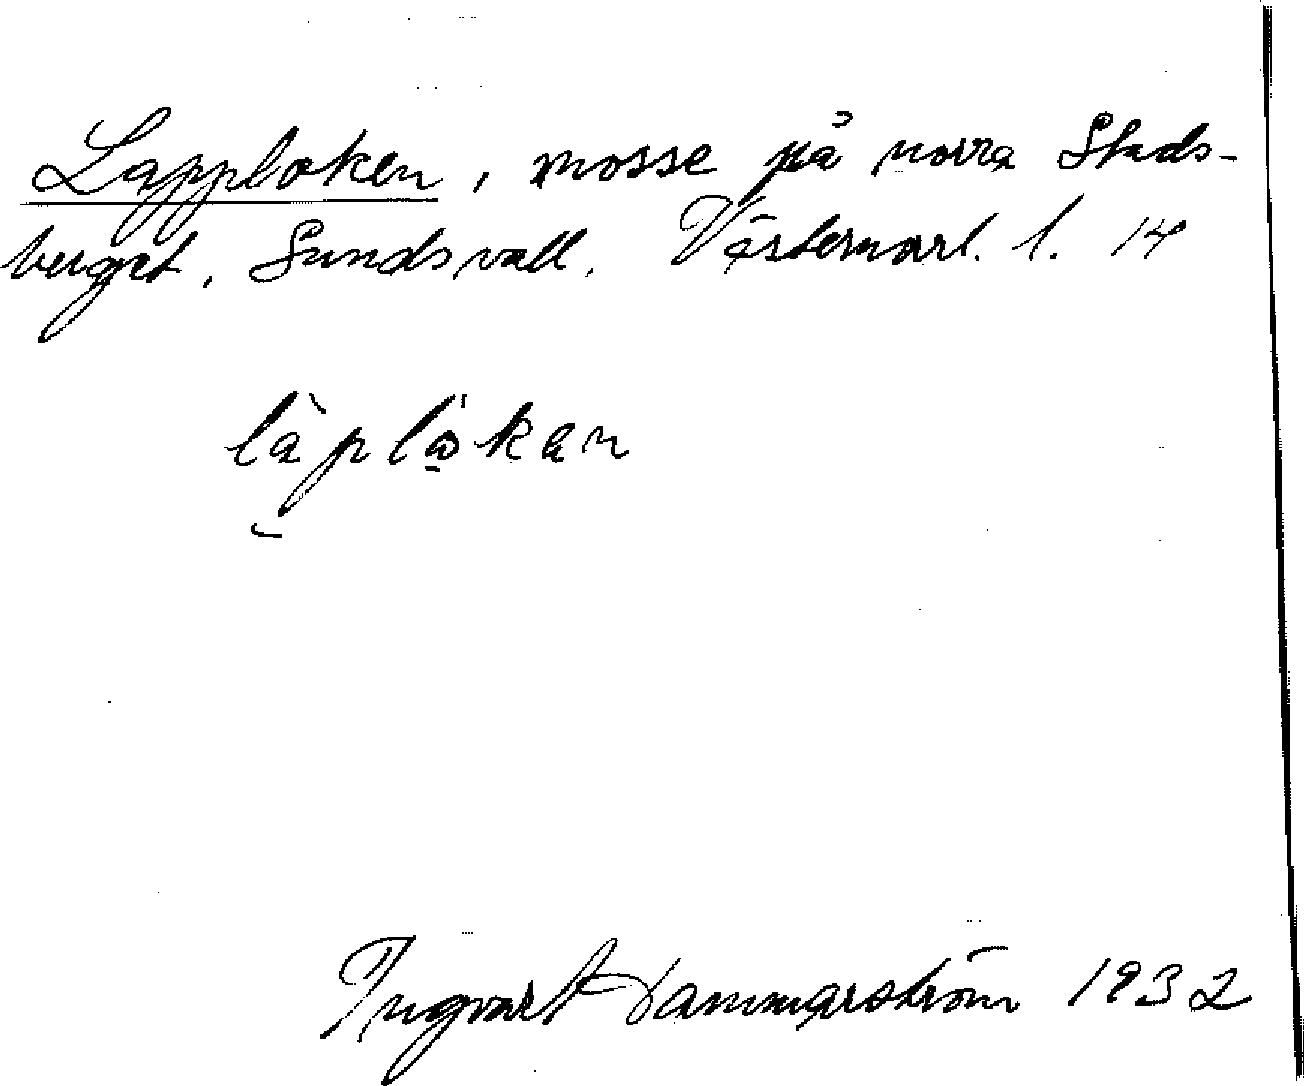 Lapploken, mosse på norra Stads-
berget, Sundsvall. Västernorrl. l. 14
làplökan
Ingvart Hammarström 1932